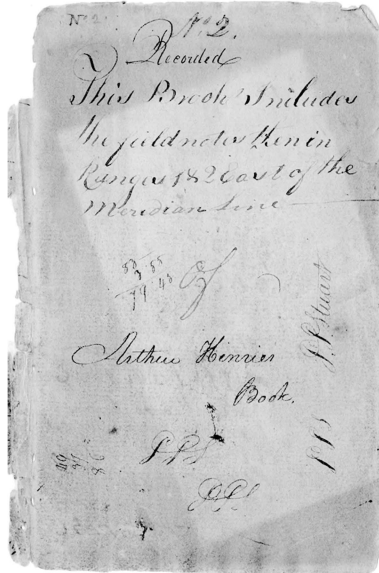 No 2
No. 2.
Recorded
This Book Includes
the field notes Run in
Ranges 1 & 2 East of the
Meridian Line
Of
Arthur Henries
Book.
J.P. Stuart